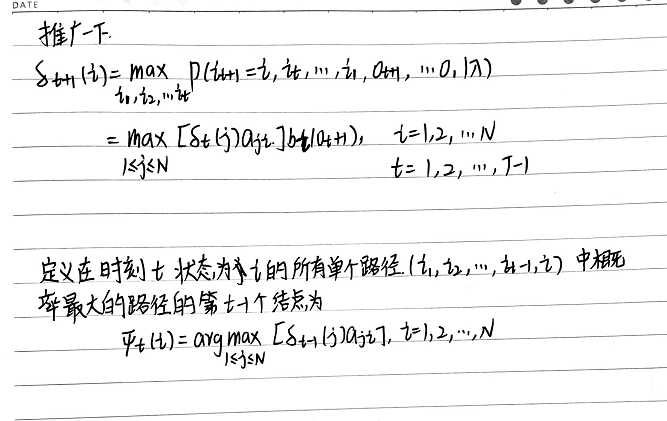 DATE
推广一下.
δₜ₊₁(i)= max P(iₜ₊₁=i, iₜ, …, i₁, oₜ₊₁, …o₁|λ)
i₁, i₂, …iₜ
= max [δₜ(j)aⱼᵢ]bᵢ(oₜ₊₁), i=1,2, …N
1≤j≤N t=1,2,…,T-1
定义在时刻 t 状态为 i 的所有单个路径 (i₁, i₂, …, iₜ₋₁, i) 中概
率最大的路径的第 t-1 个结点为
Ψₜ(i)= arg max [δₜ₋₁(j)aⱼᵢ], i=1,2,…,N
1≤j≤N